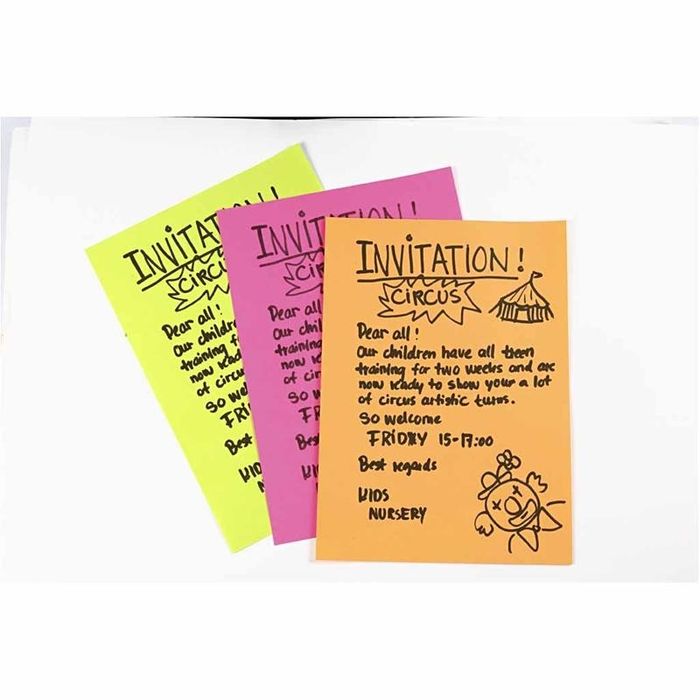 INVITATION!
CIRCUS
Dear all!
Our children
training for
now ready
of circus
So wel
FRI
Best
KIDS
N
INVITATION!
CIR
Dear all
Our chil
training
now r
of cir
So w
FRI
Best
KIDS
N
INVITATION!
CIRCUS
Dear all!
Our children have all been
training for two weeks and are
now ready to show your a lot
of circus artistic turns.
So welcome
FRIDAY 15-17:00
Best regards
KIDS
NURSERY